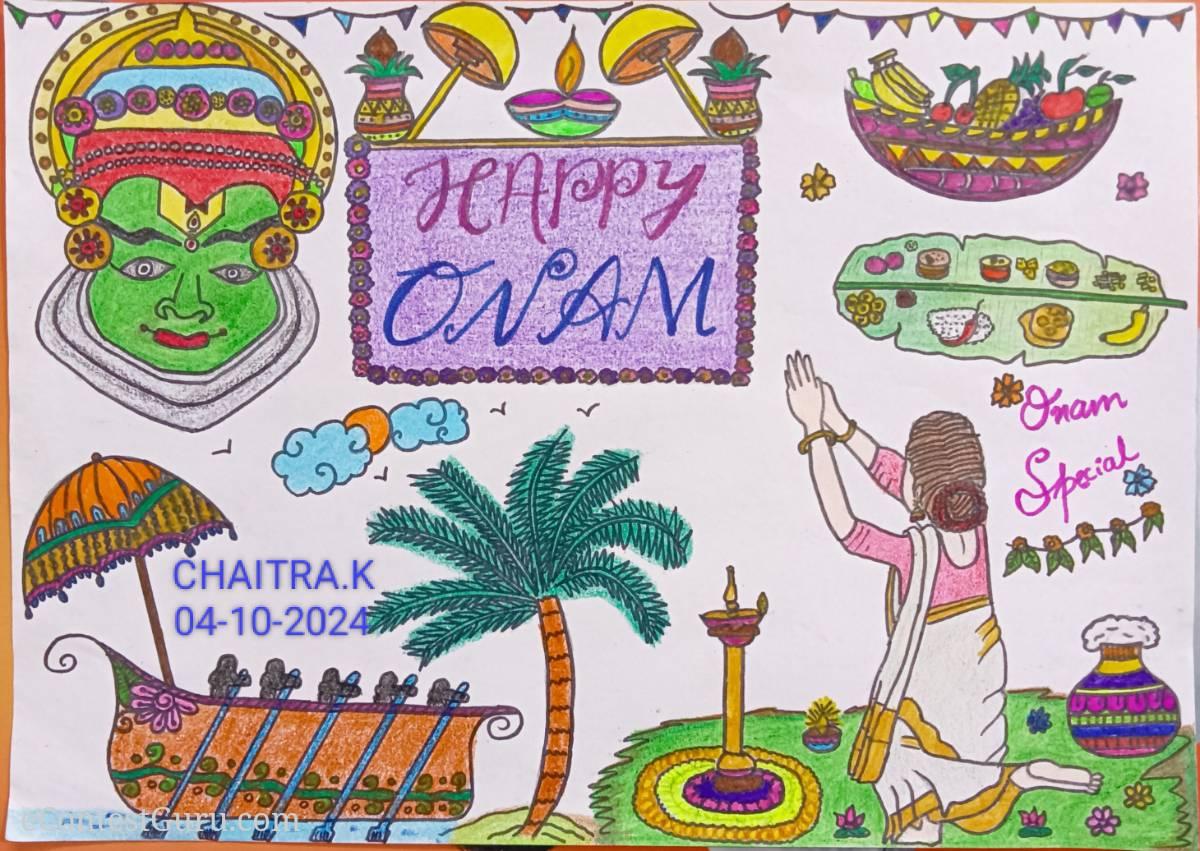 HAppy
ONAM
Onam
Special
CHAITRA.K
04-10-2024
©ContestGuru.com